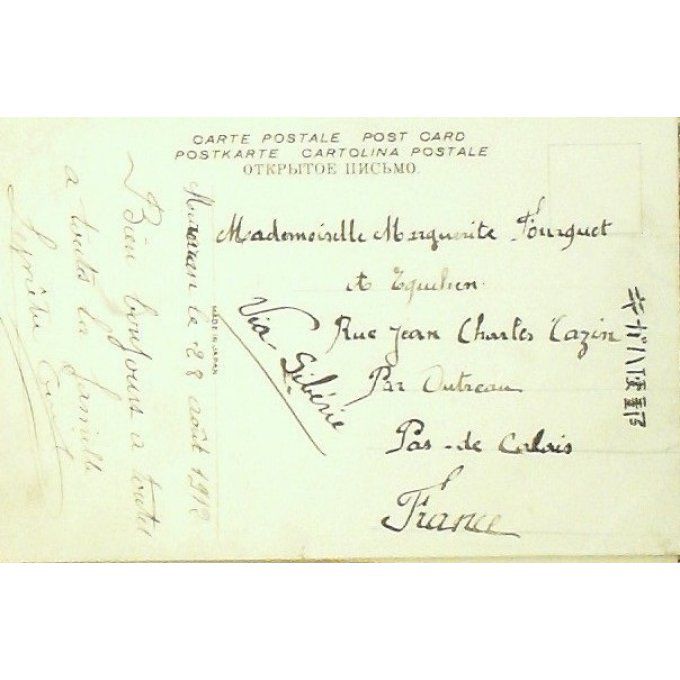 CARTE POSTALE POST CARD
POSTKARTE CARTOLINA POSTALE
ОТКРЫТОЕ ПИСЬМО.
Mademoiselle Marguerite Fourquet
A Equihen
Rue Jean Charles Cazin
Par Outreau
Pas-de Calais
France
Via-Sibérie
MADE IN JAPAN
le 28 août 1912
Bien bonjours a toutes
a toute la famille